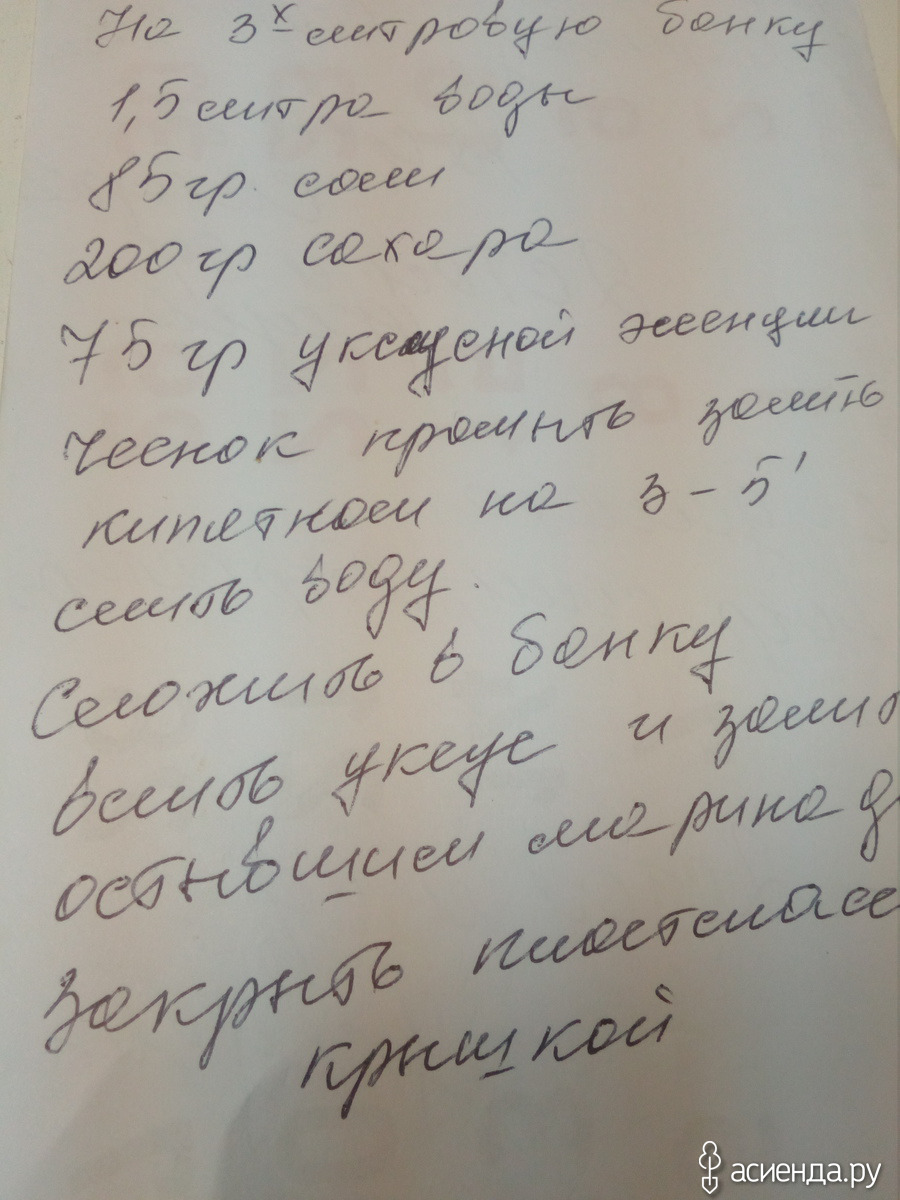 На 3х литровую банку
1,5 литра воды
85 гр. соли
200 гр сахара
75 гр уксусной эсенции
Чеснок промыть залить
кипятком на 3-5'
слить воду.
Сложить в банку
влить уксус и залить
остывшим маринад
Закрыть пластмасс
крышкой
асиенда.ру